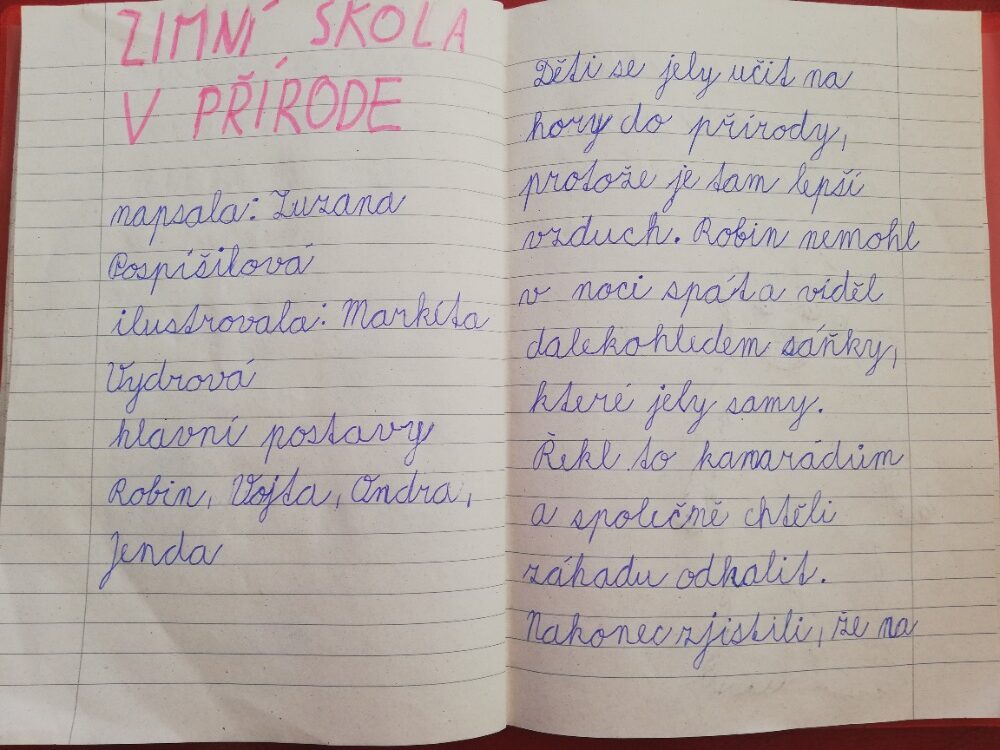 ZIMNÍ ŠKOLA
V PŘÍRODE
napsala: Zuzana
Pospíšilová
ilustrovala: Markéta
Vydrová
hlavní postavy
Robin, Vojta, Ondra,
Jenda
Děti se jely učit na
hory do přírody,
protože je tam lepší
vzduch. Robin nemohl
v noci spát a viděl
dalekohledem sáňky,
které jely samy.
Řekl to kamarádům
a společně chtěli
záhadu odhalit.
Nakonec zjistili, že na